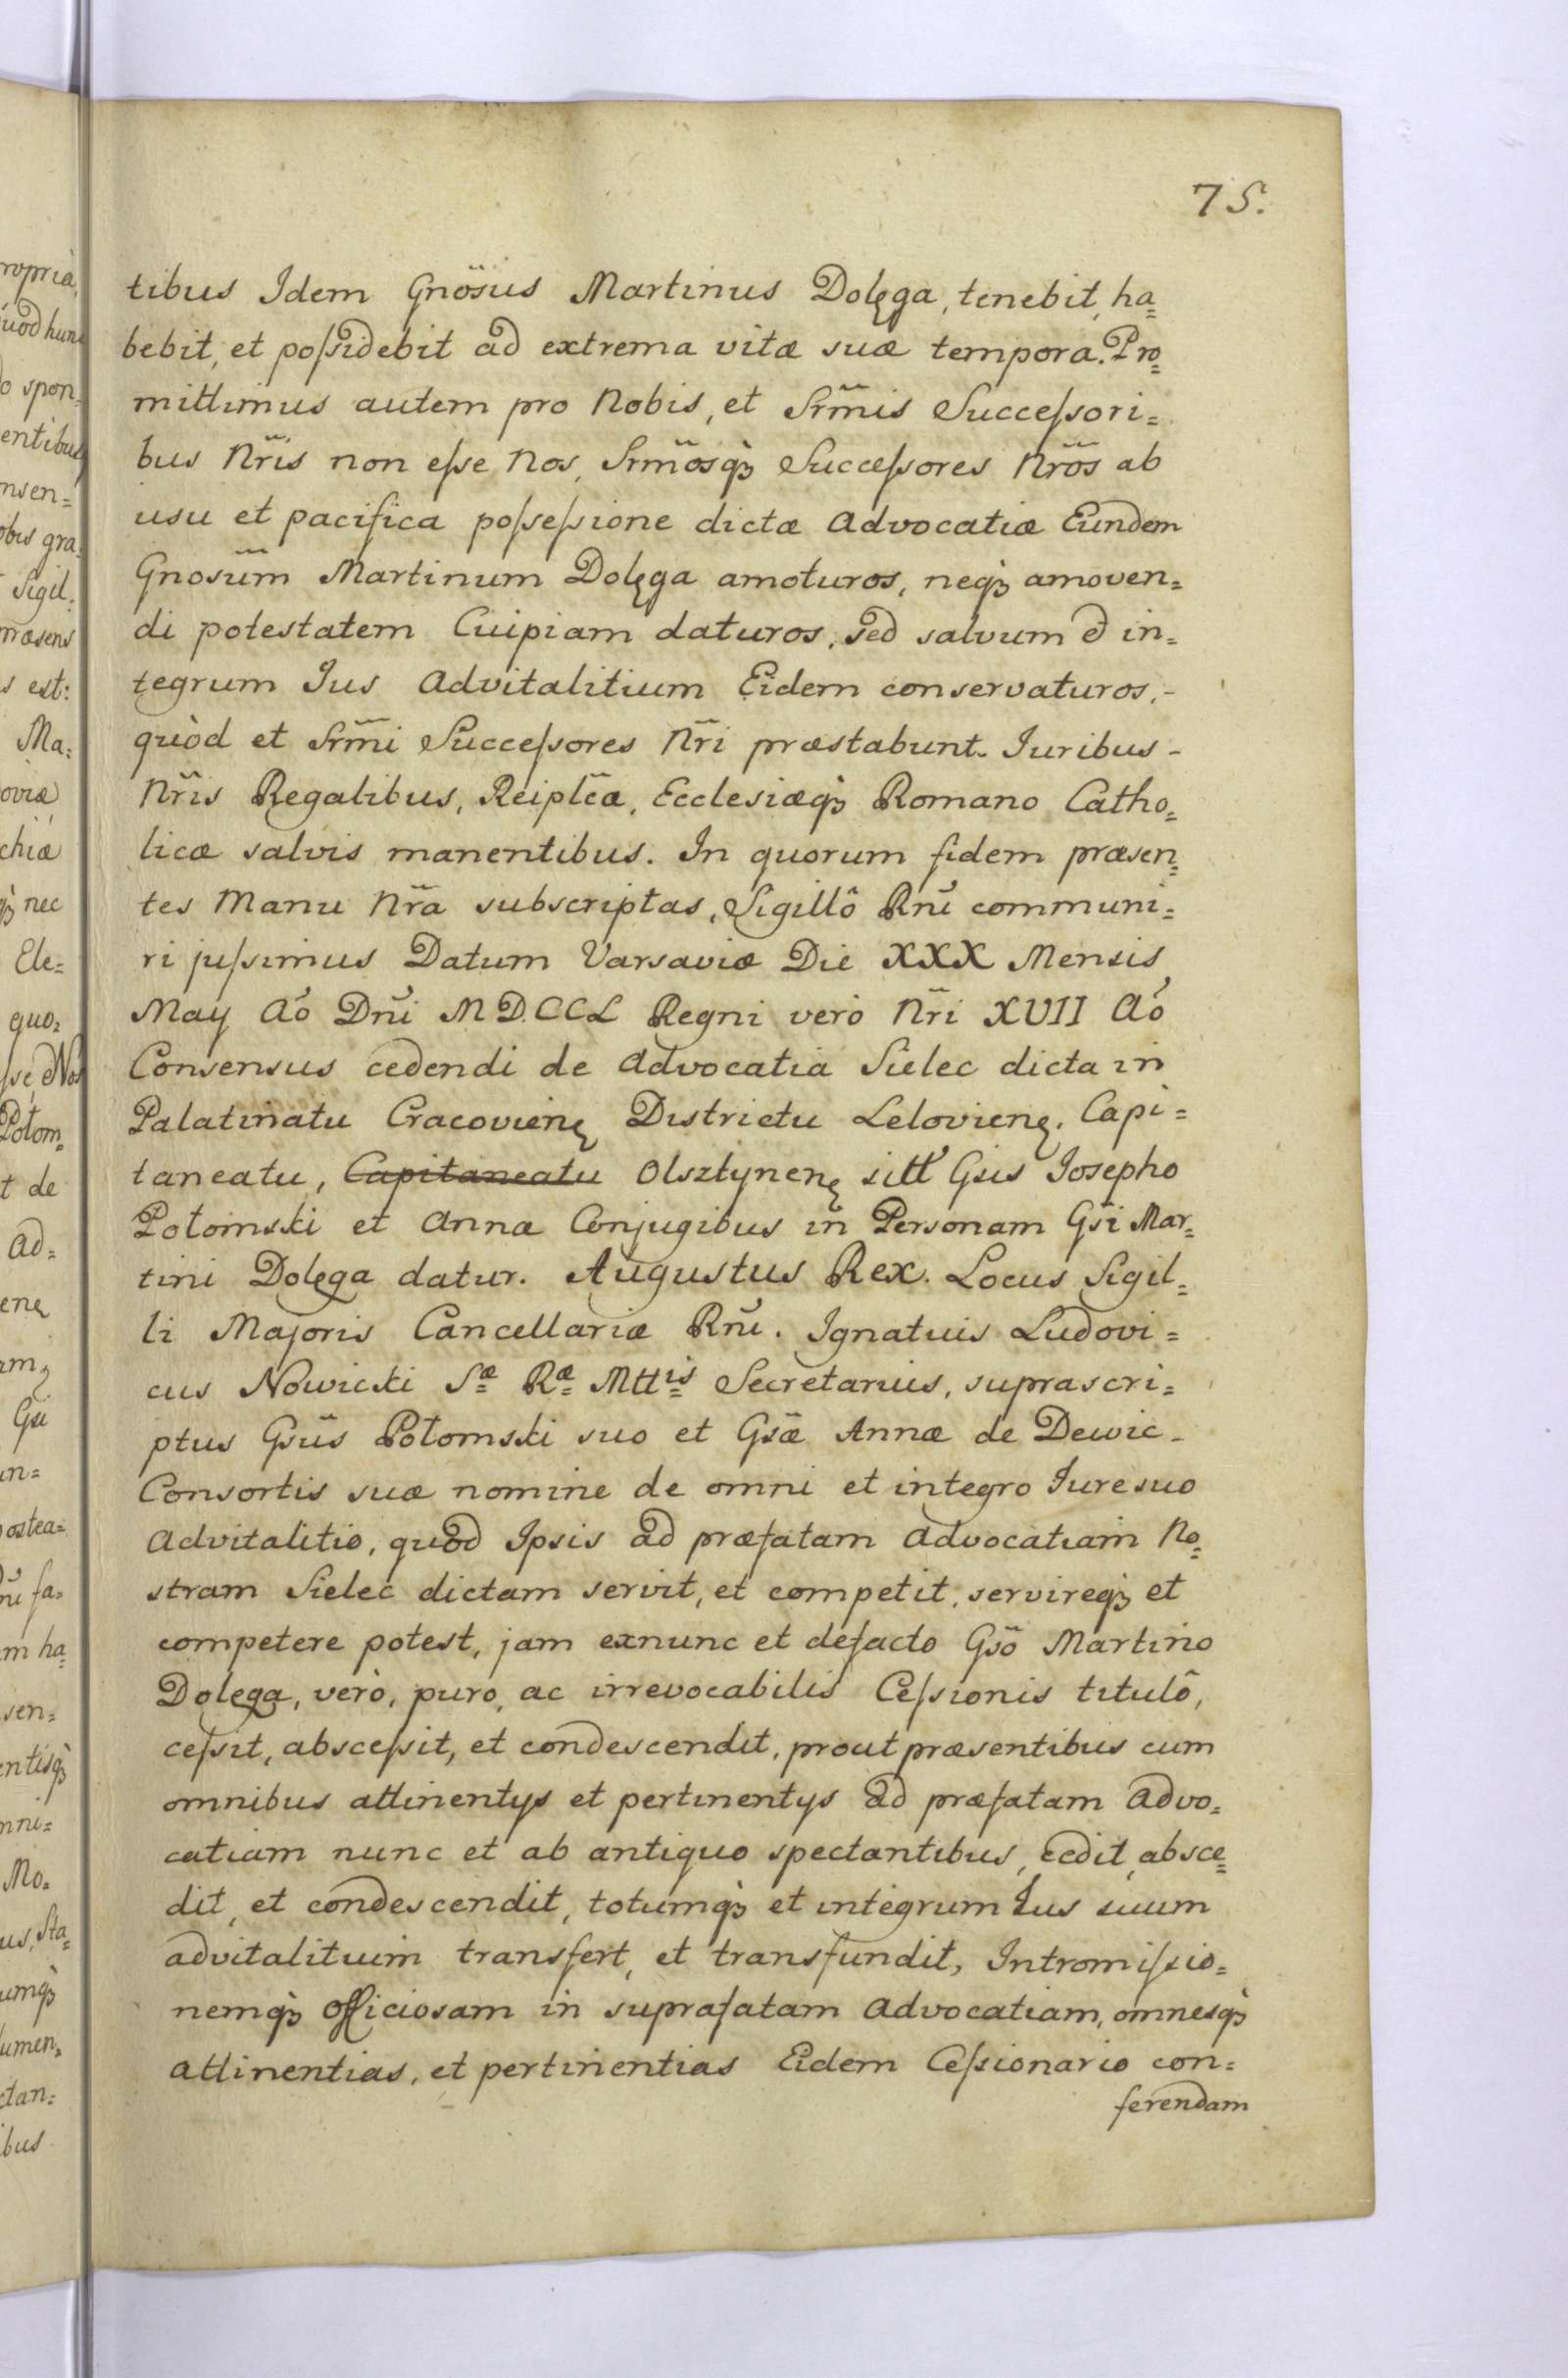 75.
tibus Idem Gnõsus Martinus Dolęga, tenebit, ha=
bebit, et poſsidebit ad extrema vitæ suæ tempora. Pro=
mittimus autem pro Nobis, et Srm̃is Succeſsori=
bus Nr̃is non eſse Nos, Srm̃osq̃ Succeſsores Nrõs ab
usu et pacifica poſseſsione dictæ Advocatiæ Eundem
Gnosũm Martinum Dolęga amoturos, neq̃ amoven=
di potestatem Cuipiam daturos, sed salvum et in=
tegrum Jus Advitalitium Eidem conservaturos,-
quòd et Srm̃i Succeſsores Nr̃i præstabunt. Iuribus-
Nr̃is Regalibus, Reiplc̃æ, Ecclesiæq̃ Romano Catho=
licæ salvis manentibus. In quorum fidem præsen=
tes Manu Nr̃a subscriptas, Sigillô Rnĩ communi=
ri juſsimus Datum Varsaviæ Die XXX Mensis
May Aõ Dnĩ M D.CCL Regni verò Nr̃i XVII Aõ
Consensus cedendi de Advocatia Sielec dicta in
Palatinatu Cracovienę Districtu Lelovienę. Capi=
taneatu, Capitaneatu Olsztynenę sitt Gsis Josepho
Potomski et Annæ Conjugibus in Personam Gsĩ Mar=
tini Dolęga datur. Augustus Rex. Locus Sigil=
li Majoris Cancellariæ Rnĩ. Ignatuis Ludovi=
cus Nowicki Sæ Ræ Mttis Secretarius, suprascri=
ptus Gsũs Potomski suo et Gsæ̃ Annæ de Dewic-
Consortis suæ nomine de omni et integro Jure suo
Advitalitio, quod Ipsis ad præfatam Advocatiam No=
stram Sielec dictam servit, et competit, servireq̃ et
competere potest, jam exnunc et defacto Gsõ Martino
Dolega, verò, puro, ac irrevocabilis Ceſsionis titulô,
ceſsit, absceſsit, et condescendit, prout præsentibus cum
omnibus attinentys et pertinentys ad præfatam Advo=
catiam nunc et ab antiquo spectantibus, cedit, absce=
dit, et condescendit, totumq̃ et integrum Ius suum
advitalituim transfert, et transfundit, Intromiſsio=
nemq̃ officiosam in suprafatam Advocatiam, omnesq̃
attinentias, et pertinentias Eidem Ceſsionario con=
ferendam